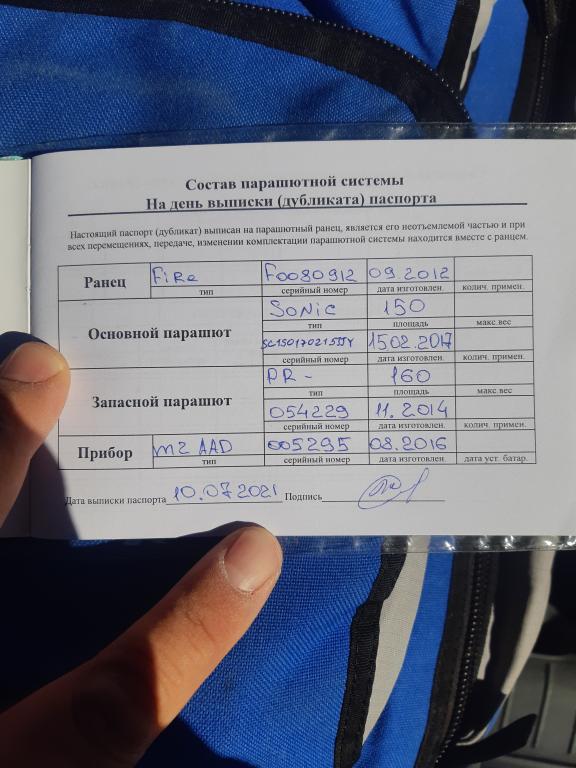 Состав парашютной системы
На день выписки (дубликата) паспорта
Настоящий паспорт (дубликат) выписан на парашютный ранец, является его неотъемлемой частью и при
всех перемещениях, передаче, изменении комплектации парашютной системы находится вместе с ранцем.
Ранец FiRe F0080912 09.2012
тип серийный номер дата изготовлен. колич. примен.
Основной парашют SoNiC 150
тип площадь макс.вес
15.02.2017
серийный номер дата изготовлен. колич. примен.
Запасной парашют PR - 160
тип площадь макс.вес
054229 11.2014
серийный номер дата изготовлен. колич. примен.
Прибор m2 AAD 005295 08.2016
тип серийный номер дата изготовлен. дата уст. батар.
Дата выписки паспорта 10.07.2021 Подпись